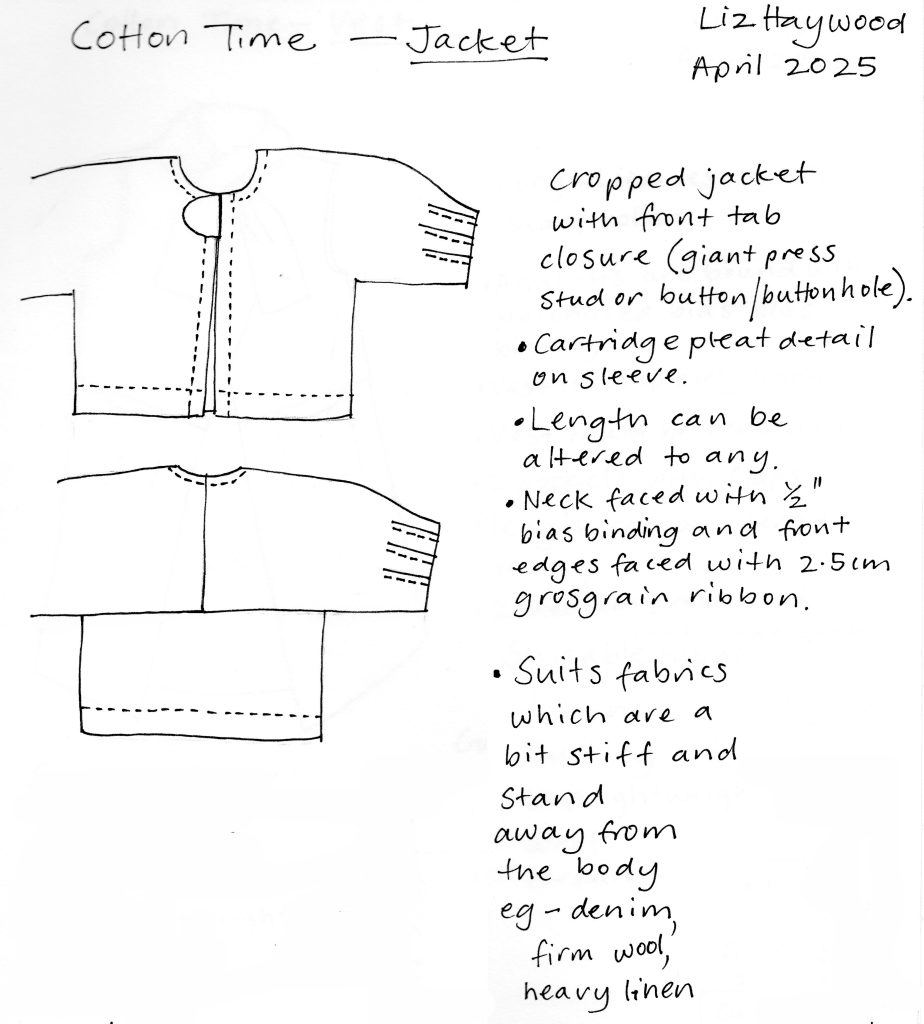 Cotton Time — Jacket
Liz Haywood
April 2025
Cropped jacket
with front tab
closure (giant press
stud or button/buttonhole).
• Cartridge pleat detail
on sleeve.
• Length can be
altered to any.
• Neck faced with ½"
bias binding and front
edges faced with 2.5cm
grosgrain ribbon.
• Suits fabrics
which are a
bit stiff and
stand
away from
the body
eg - denim,
firm wool,
heavy linen